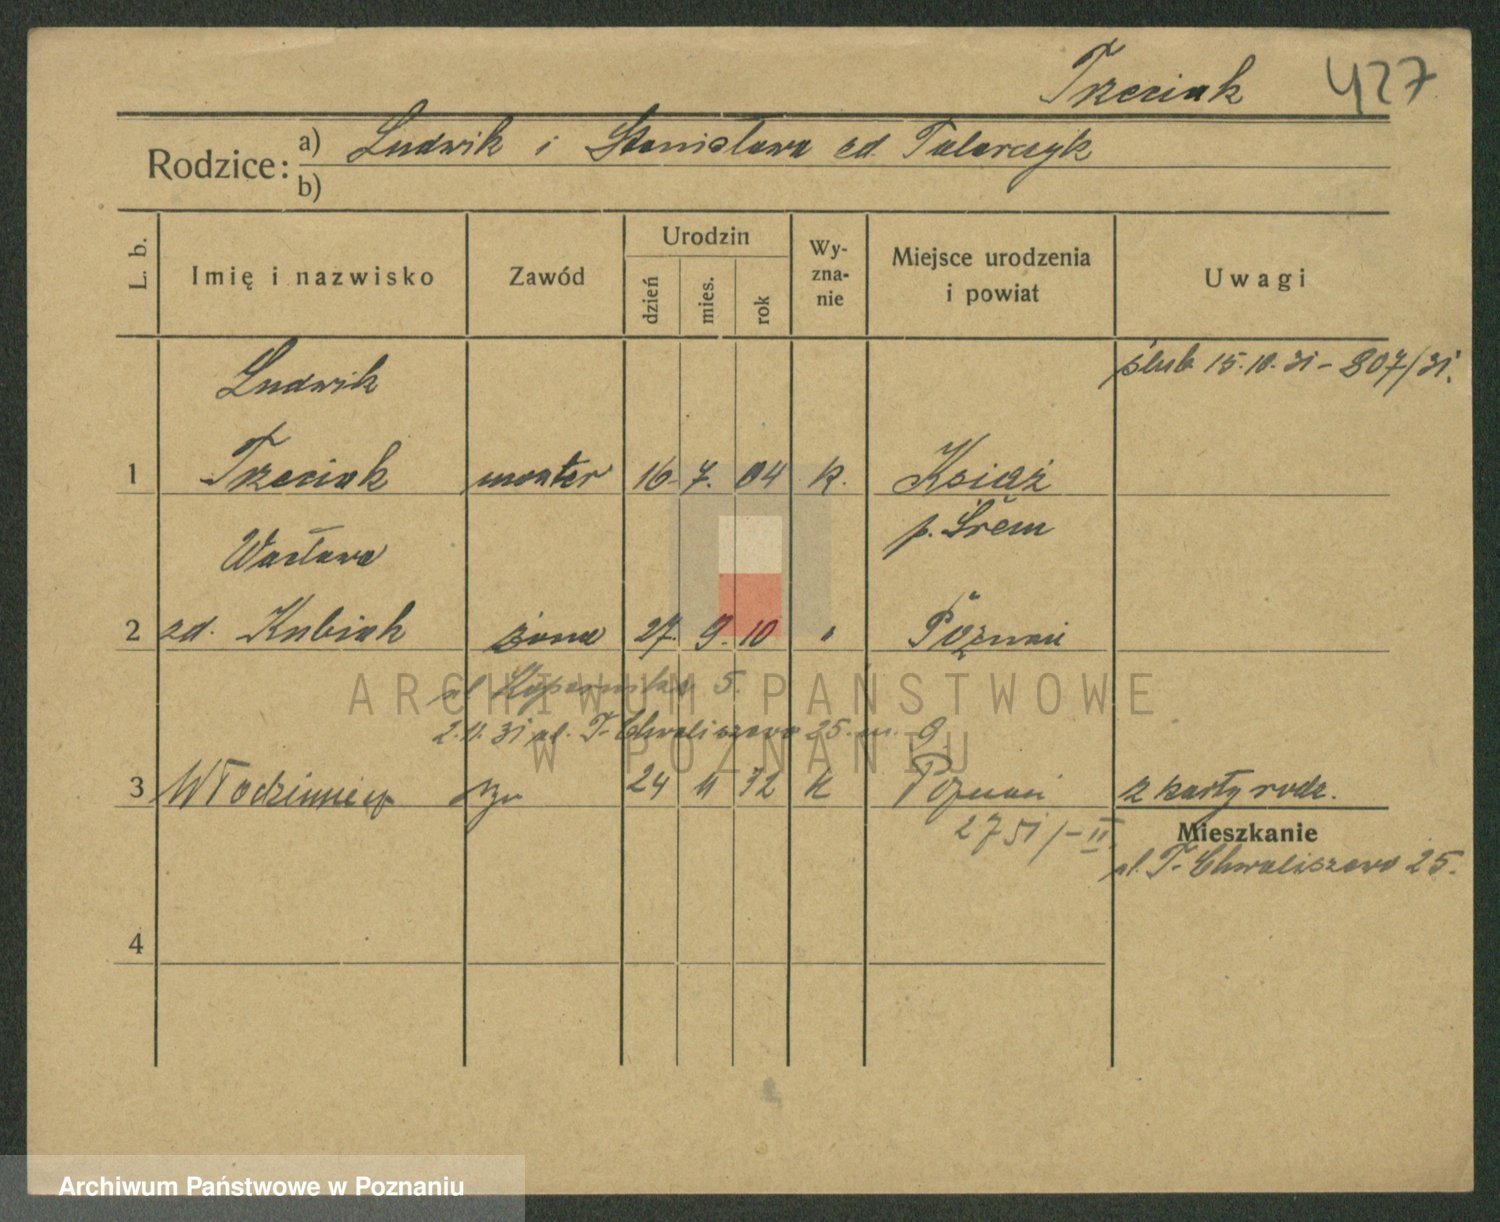 Trzeciak 427
Rodzice: a) Ludwik i Stanisława zd. Talarczyk
b)
L. b. Imię i nazwisko Zawód Urodzin dzień mies. rok Wy-zna-nie Miejsce urodzenia i powiat Uwagi
Ludwik ślub 15.10.31 - 807/31.
1 Trzeciak monter 16. 7. 04 k. Książ
p. Śrem
Wacława
2 zd. Kubiak żona 27. 9. 10 " Poznań
ul. 5.
2.11.31 ul. T. Chwaliszewo 25. m. 9
3 Włodzimierz syn 24 11 32 k Poznań z karty rodz.
2751/-II.
Mieszkanie
ul. T. Chwaliszewo 25.
4
ARCHIWUM PAŃSTWOWE
W POZNANIU
Archiwum Państwowe w Poznaniu